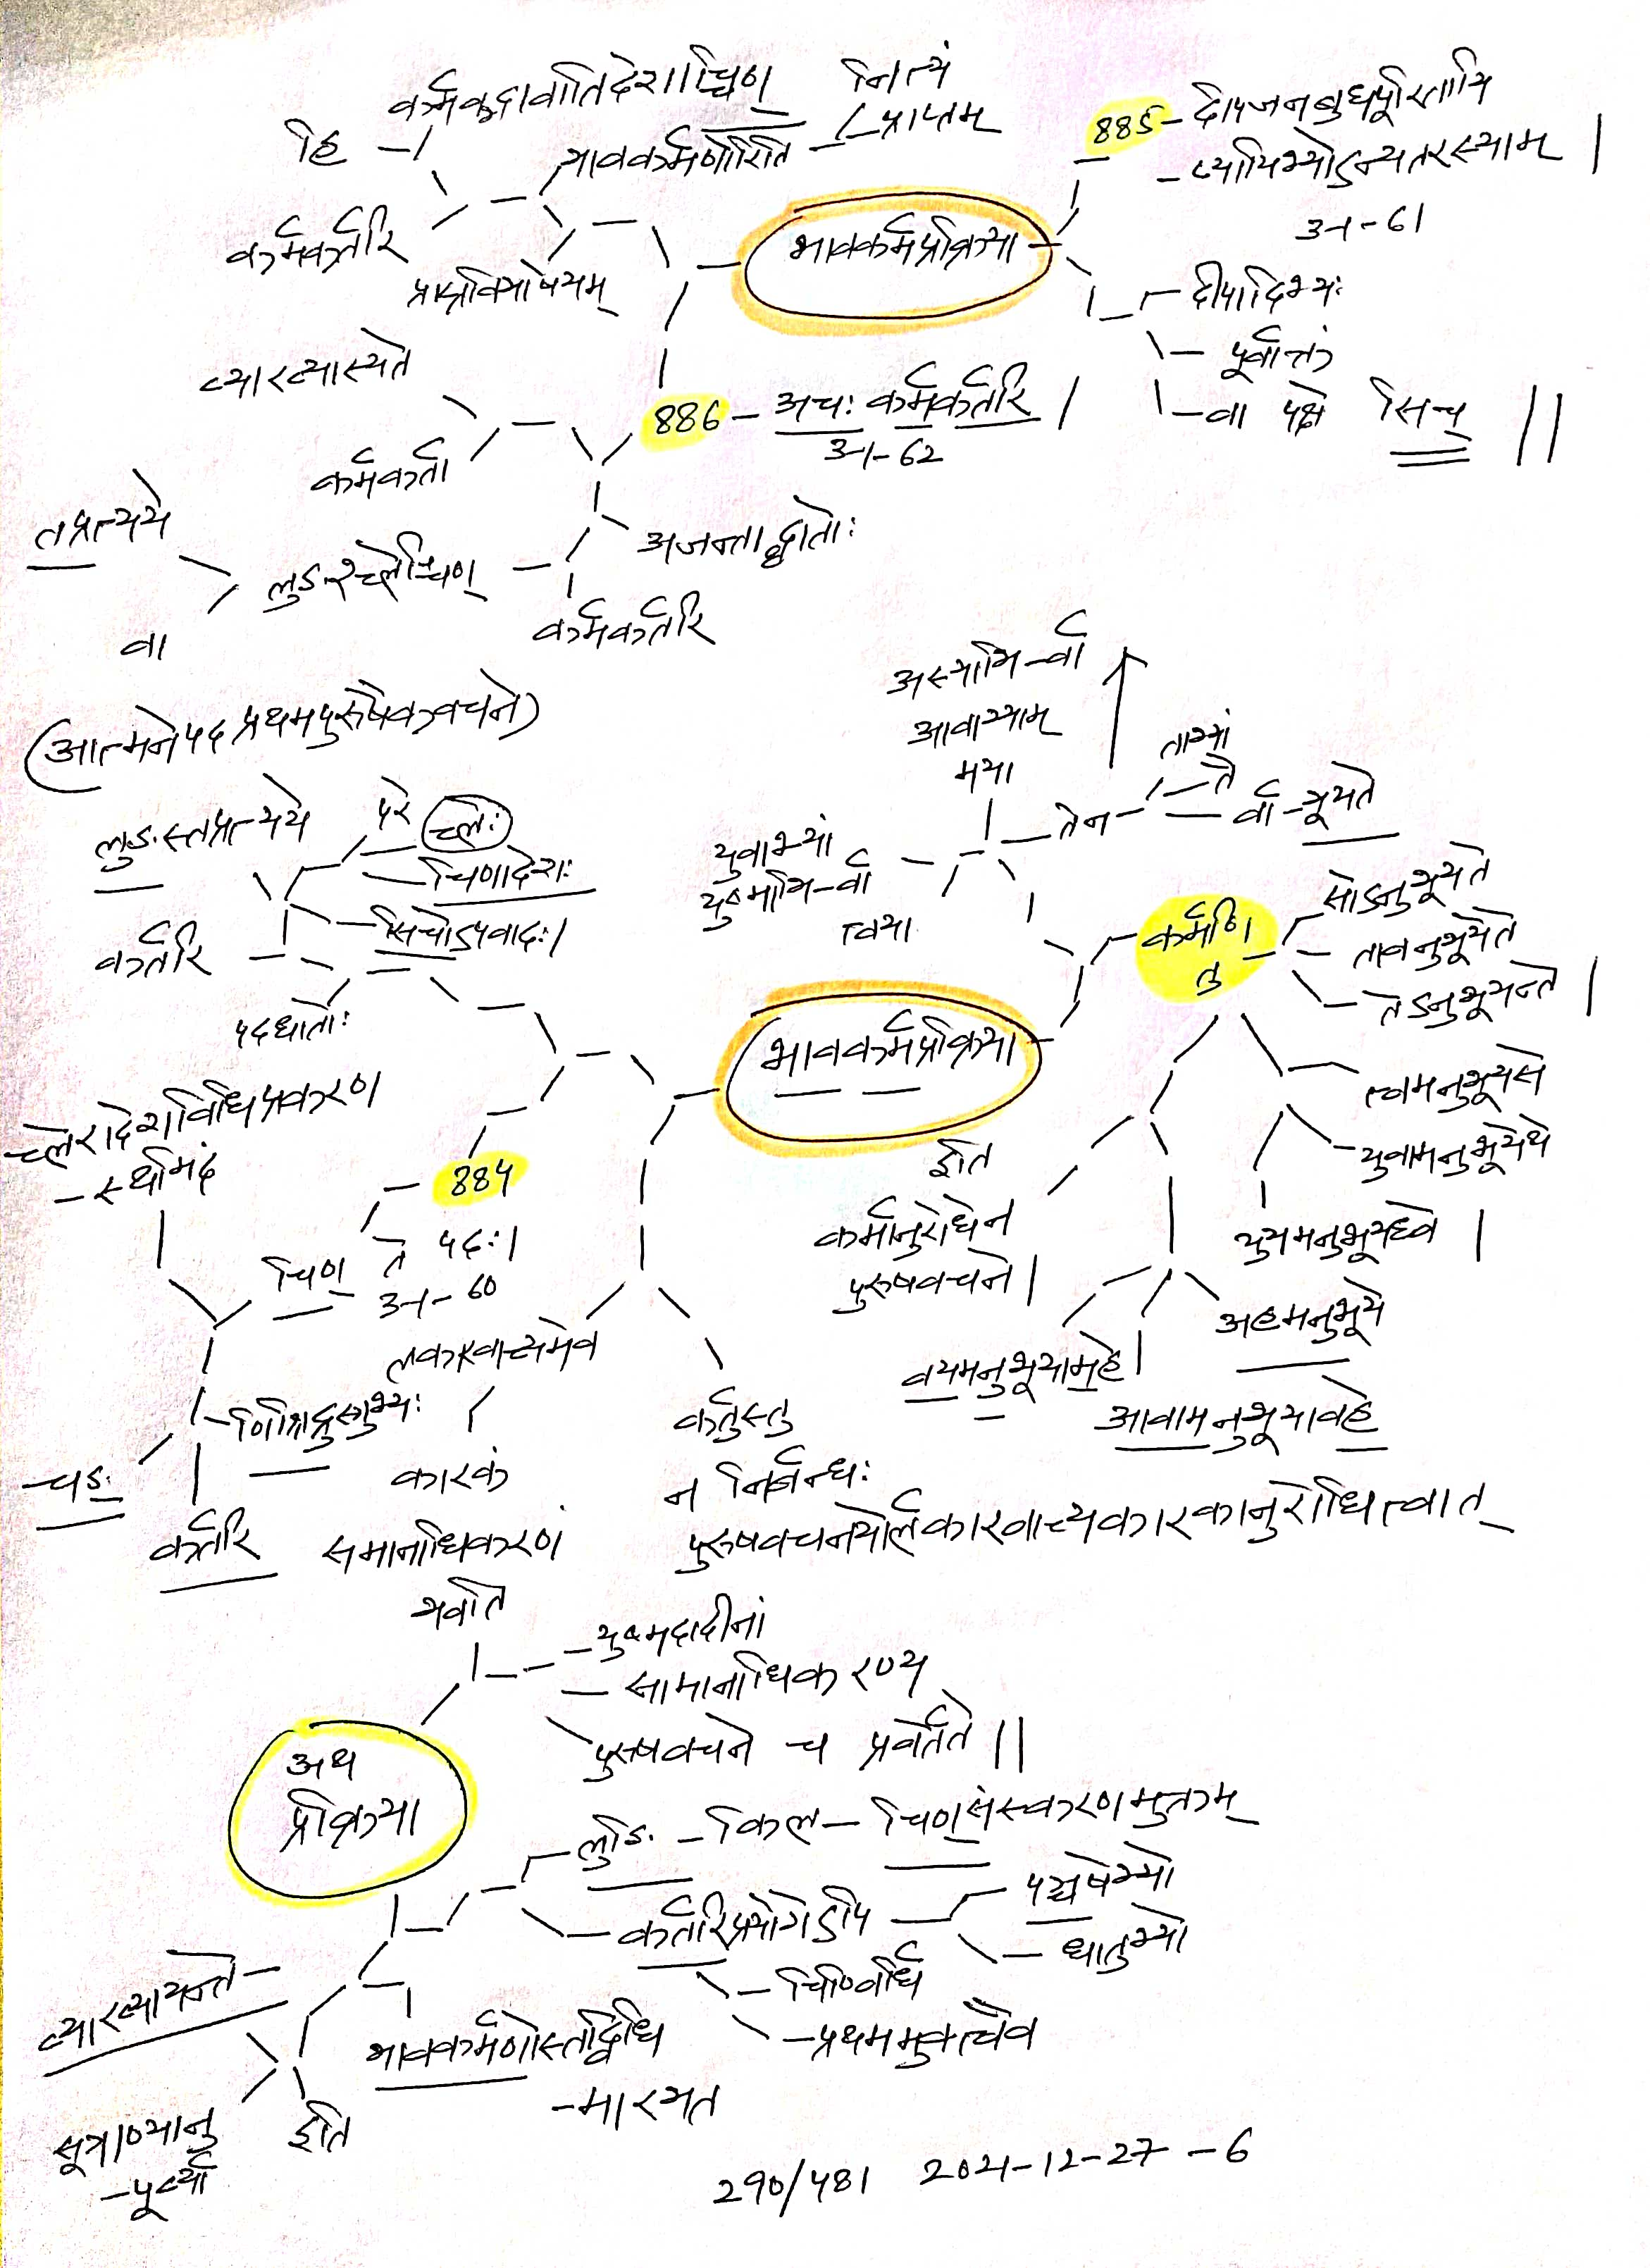 कर्मवद्भावातिदेशाच्चिण्
नित्यं
प्राप्तम्
हि
भावकर्मणोरिति
कर्मकर्तरि
भावकर्मप्रक्रिया
885 - दीपजनबुधपूरितायि
- प्यायिभ्योऽन्यतरस्याम् ।
3-1-61
दीपादिभ्यः
पूर्वोक्तं
वा पक्षे सिच् ॥
व्याख्यास्यते
886 - अचः कर्मकर्तरि ।
3-1-62
कर्मकर्ता
तप्रत्यये
वा
लुङश्च्लेश्चिण्
अजन्ताद्धातोः
कर्मकर्तरि
(आत्मनेपद प्रथमपुरुषैकवचने)
लुङस्तप्रत्यये
परे
च्लेः
चिणादेशः
सिचोऽपवादः ।
कर्तरि
पदधातोः
च्लेरादेशविधिप्रकरण
- स्थमिदं
884
चिण् ते पदः ।
3-1-60
णिश्रिद्रुस्रुभ्यः
चङ्
कर्तरि
अस्माभि-र्वा
आवाभ्याम्
मया
ताभ्यां
तेन
तै
र्वा - भूयते
युवाभ्यां
युष्माभि-र्वा
त्वया
कर्मणि
तु
सोऽनुभूयते
तावनुभूयेते
तेऽनुभूयन्ते ।
भावकर्मप्रक्रिया
त्वमनुभूयसे
युवामनुभूयेथे
यूयमनुभूयध्वे ।
अहमनुभूये
आवामनुभूयावहे
वयमनुभूयामहे ।
इति
कर्मानुरोधेन
पुरुषवचने ।
लकारवाच्यमेव
कारकं
समानाधिकरणं
भवति
कर्तुस्तु
न निर्बन्धः
पुरुषवचनयोर्लकारवाच्यकारकानुरोधित्वात्
युष्मदादीनां
सामानाधिकरण्य
पुरुषवचने च प्रवर्तेते ॥
अथ
प्रक्रिया
लुङि - किल - चिण्संस्करणमुक्तम्
कर्तरिप्रयोगेऽपि
पञ्चषेभ्यो
धातुभ्यो
चिण्विधिं
- प्रथममुक्त्वैव
भावकर्मणोस्तद्विधि
- मारभत
इति
सूत्राण्यानु
- पूर्व्या
व्याख्यायन्ते -
290/481 2021-12-27 - 6